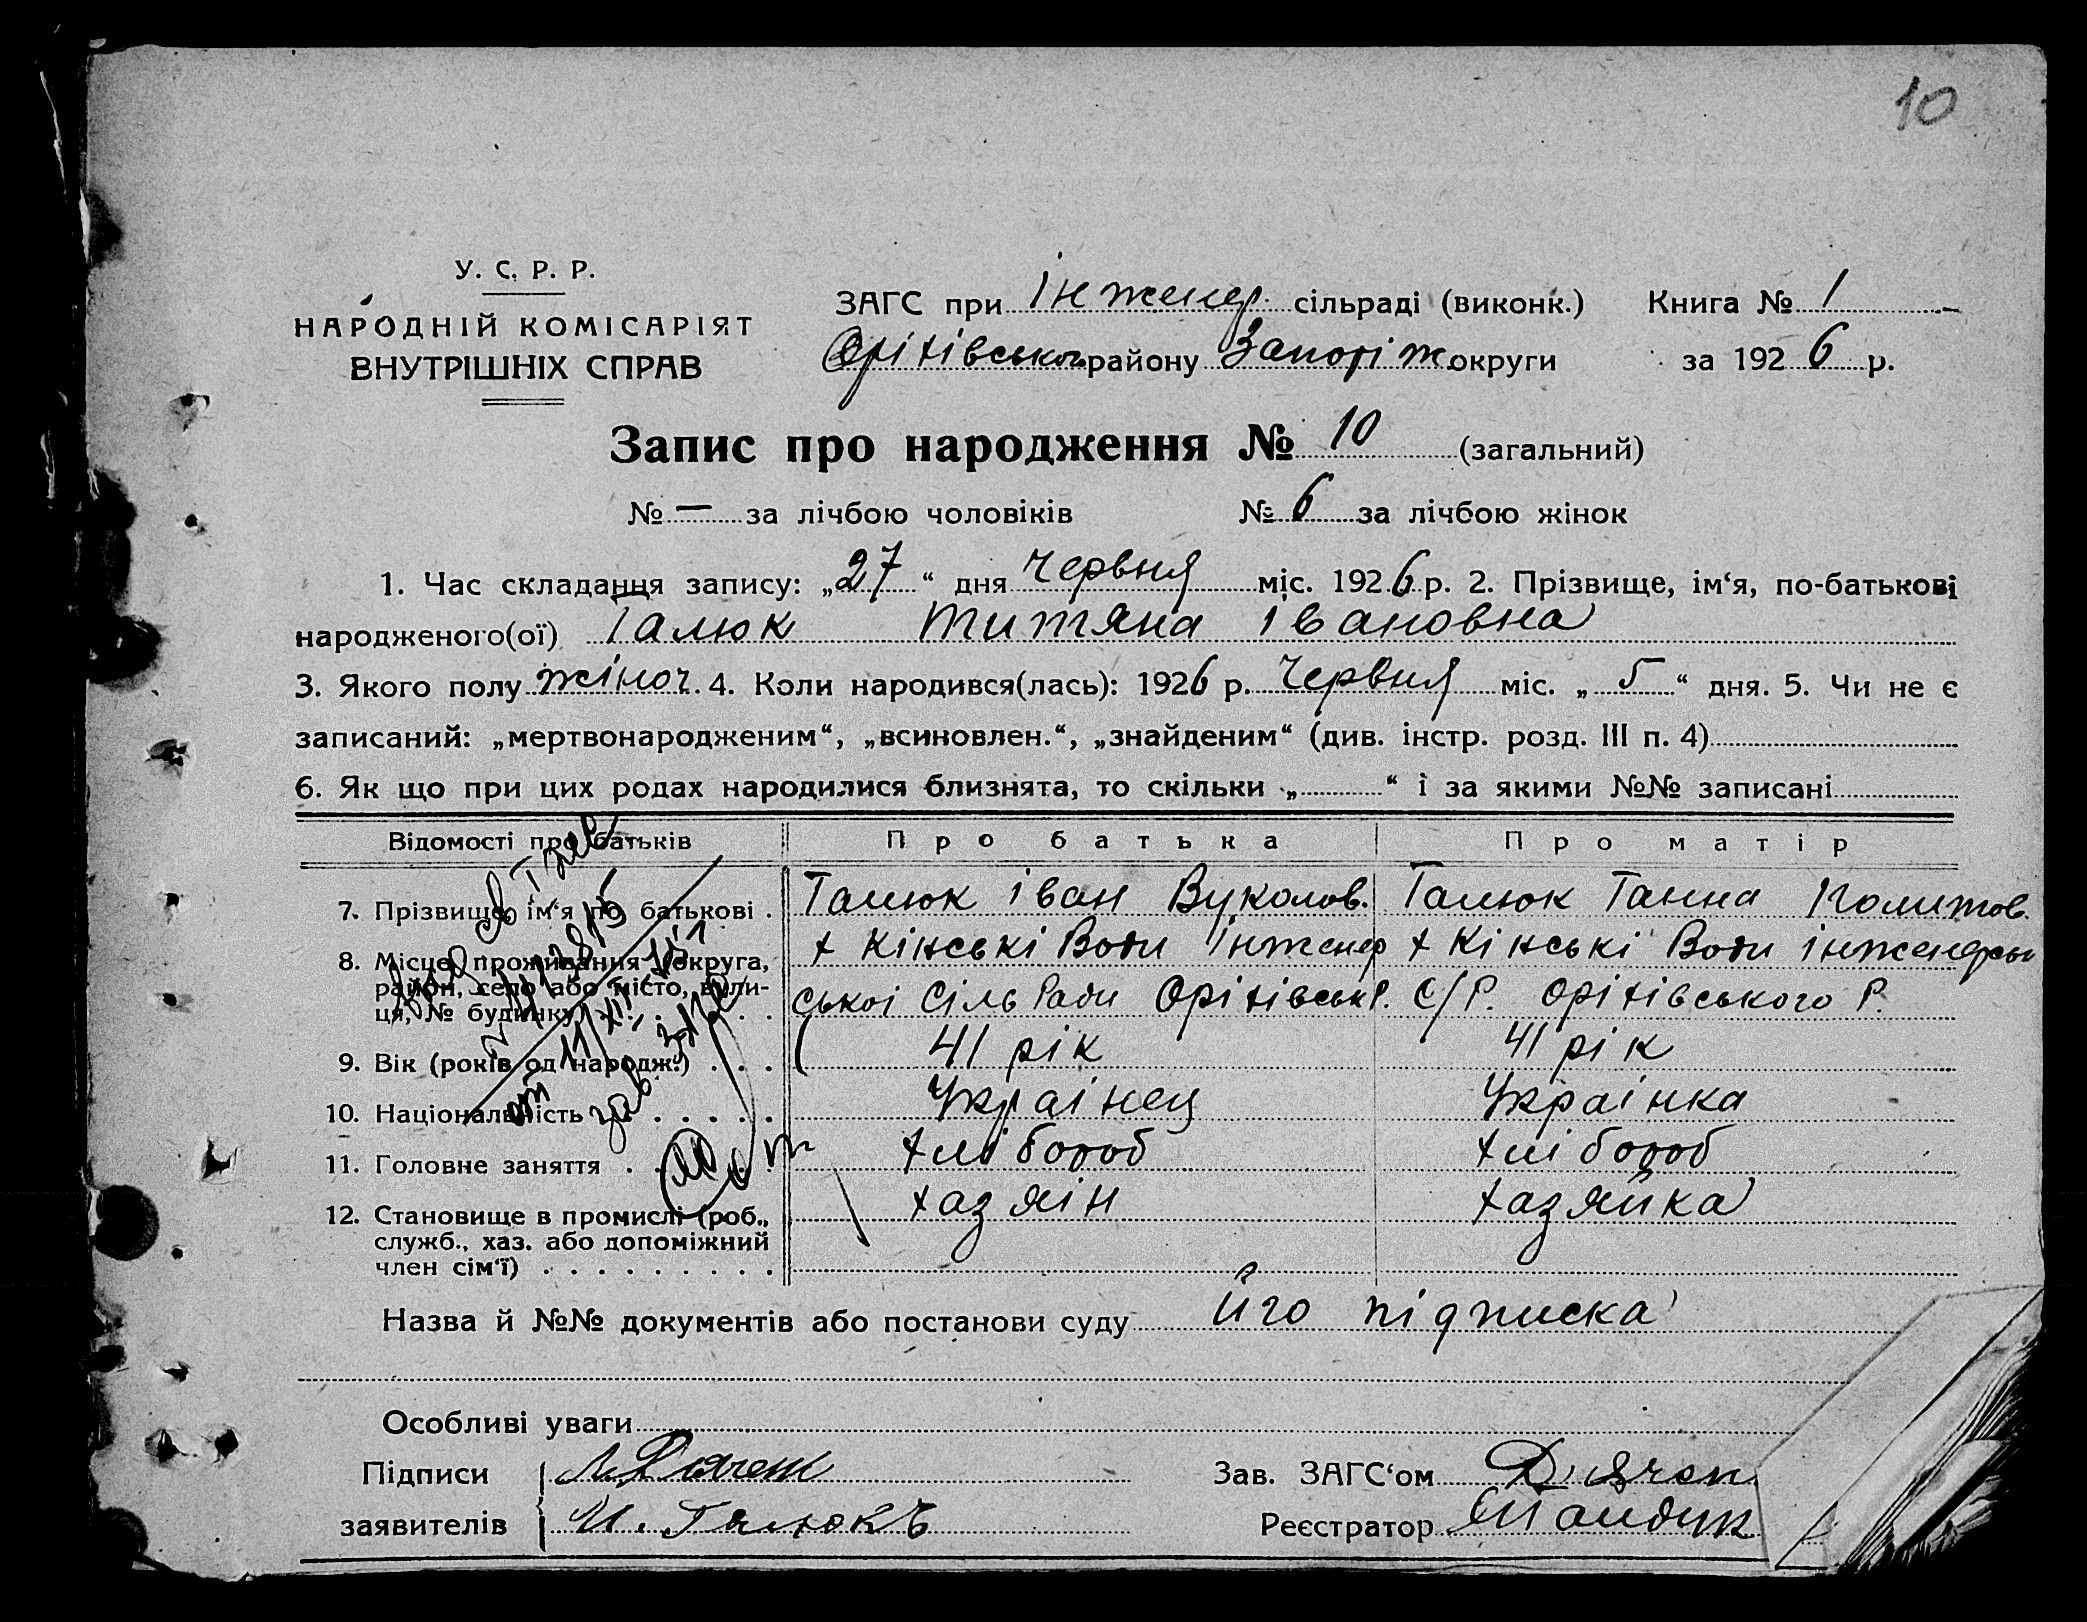 10
У. С. Р. Р.
НАРОДНІЙ КОМІСАРІЯТ
ВНУТРІШНІХ СПРАВ
ЗАГС при Інженер. сільраді (виконк.) Книга № 1
Оріхівськог району Запоріж округи за 1926 р.
Запис про народження № 10 (загальний)
№ — за лічбою чоловіків № 6 за лічбою жінок
1. Час складання запису: „27“ дня червня міс. 1926 р. 2. Прізвище, ім‘я, по-батькові
народженого(ої) Галюк Титяна Івановна
3. Якого полу жіноч. 4. Коли народився(лась): 1926 р. Червня міс. „5“ дня. 5. Чи не є
записаний: „мертвонародженим“, „всиновлен.“, „знайденим“ (див. інстр. розд. III п. 4)
6. Як що при цих родах народилися близнята, то скільки „ “ і за якими №№ записані
Відомості про батьків Про батька Про матір
7. Прізвище, ім‘я по батькові . Галюк Іван Вуколов. Галюк Ганна Іполитов.
8. Місце проживання (округа, х Кінські Води Інженер х Кінські Води інженерськ
район, село або місто, вули- ської Сіль Ради Оріхівськ Р. С/Р. Оріхівського Р.
ця, № будинку)
9. Вік (років од народж.) . . . 41 рік 41 рік
10. Національність . . . . . Українец Українка
11. Головне заняття . . . . хлібороб хлібороб
12. Становище в промислі (роб., хазяін хазяйка
служб., хаз. або допоміжний
член сім‘ї) . . . . . . . . .
Назва й №№ документів або постанови суду Його підписка
Особливі уваги
Підписи Зав. ЗАГС‘ом Дячен
заявителів И. Галюкъ Реєстратор